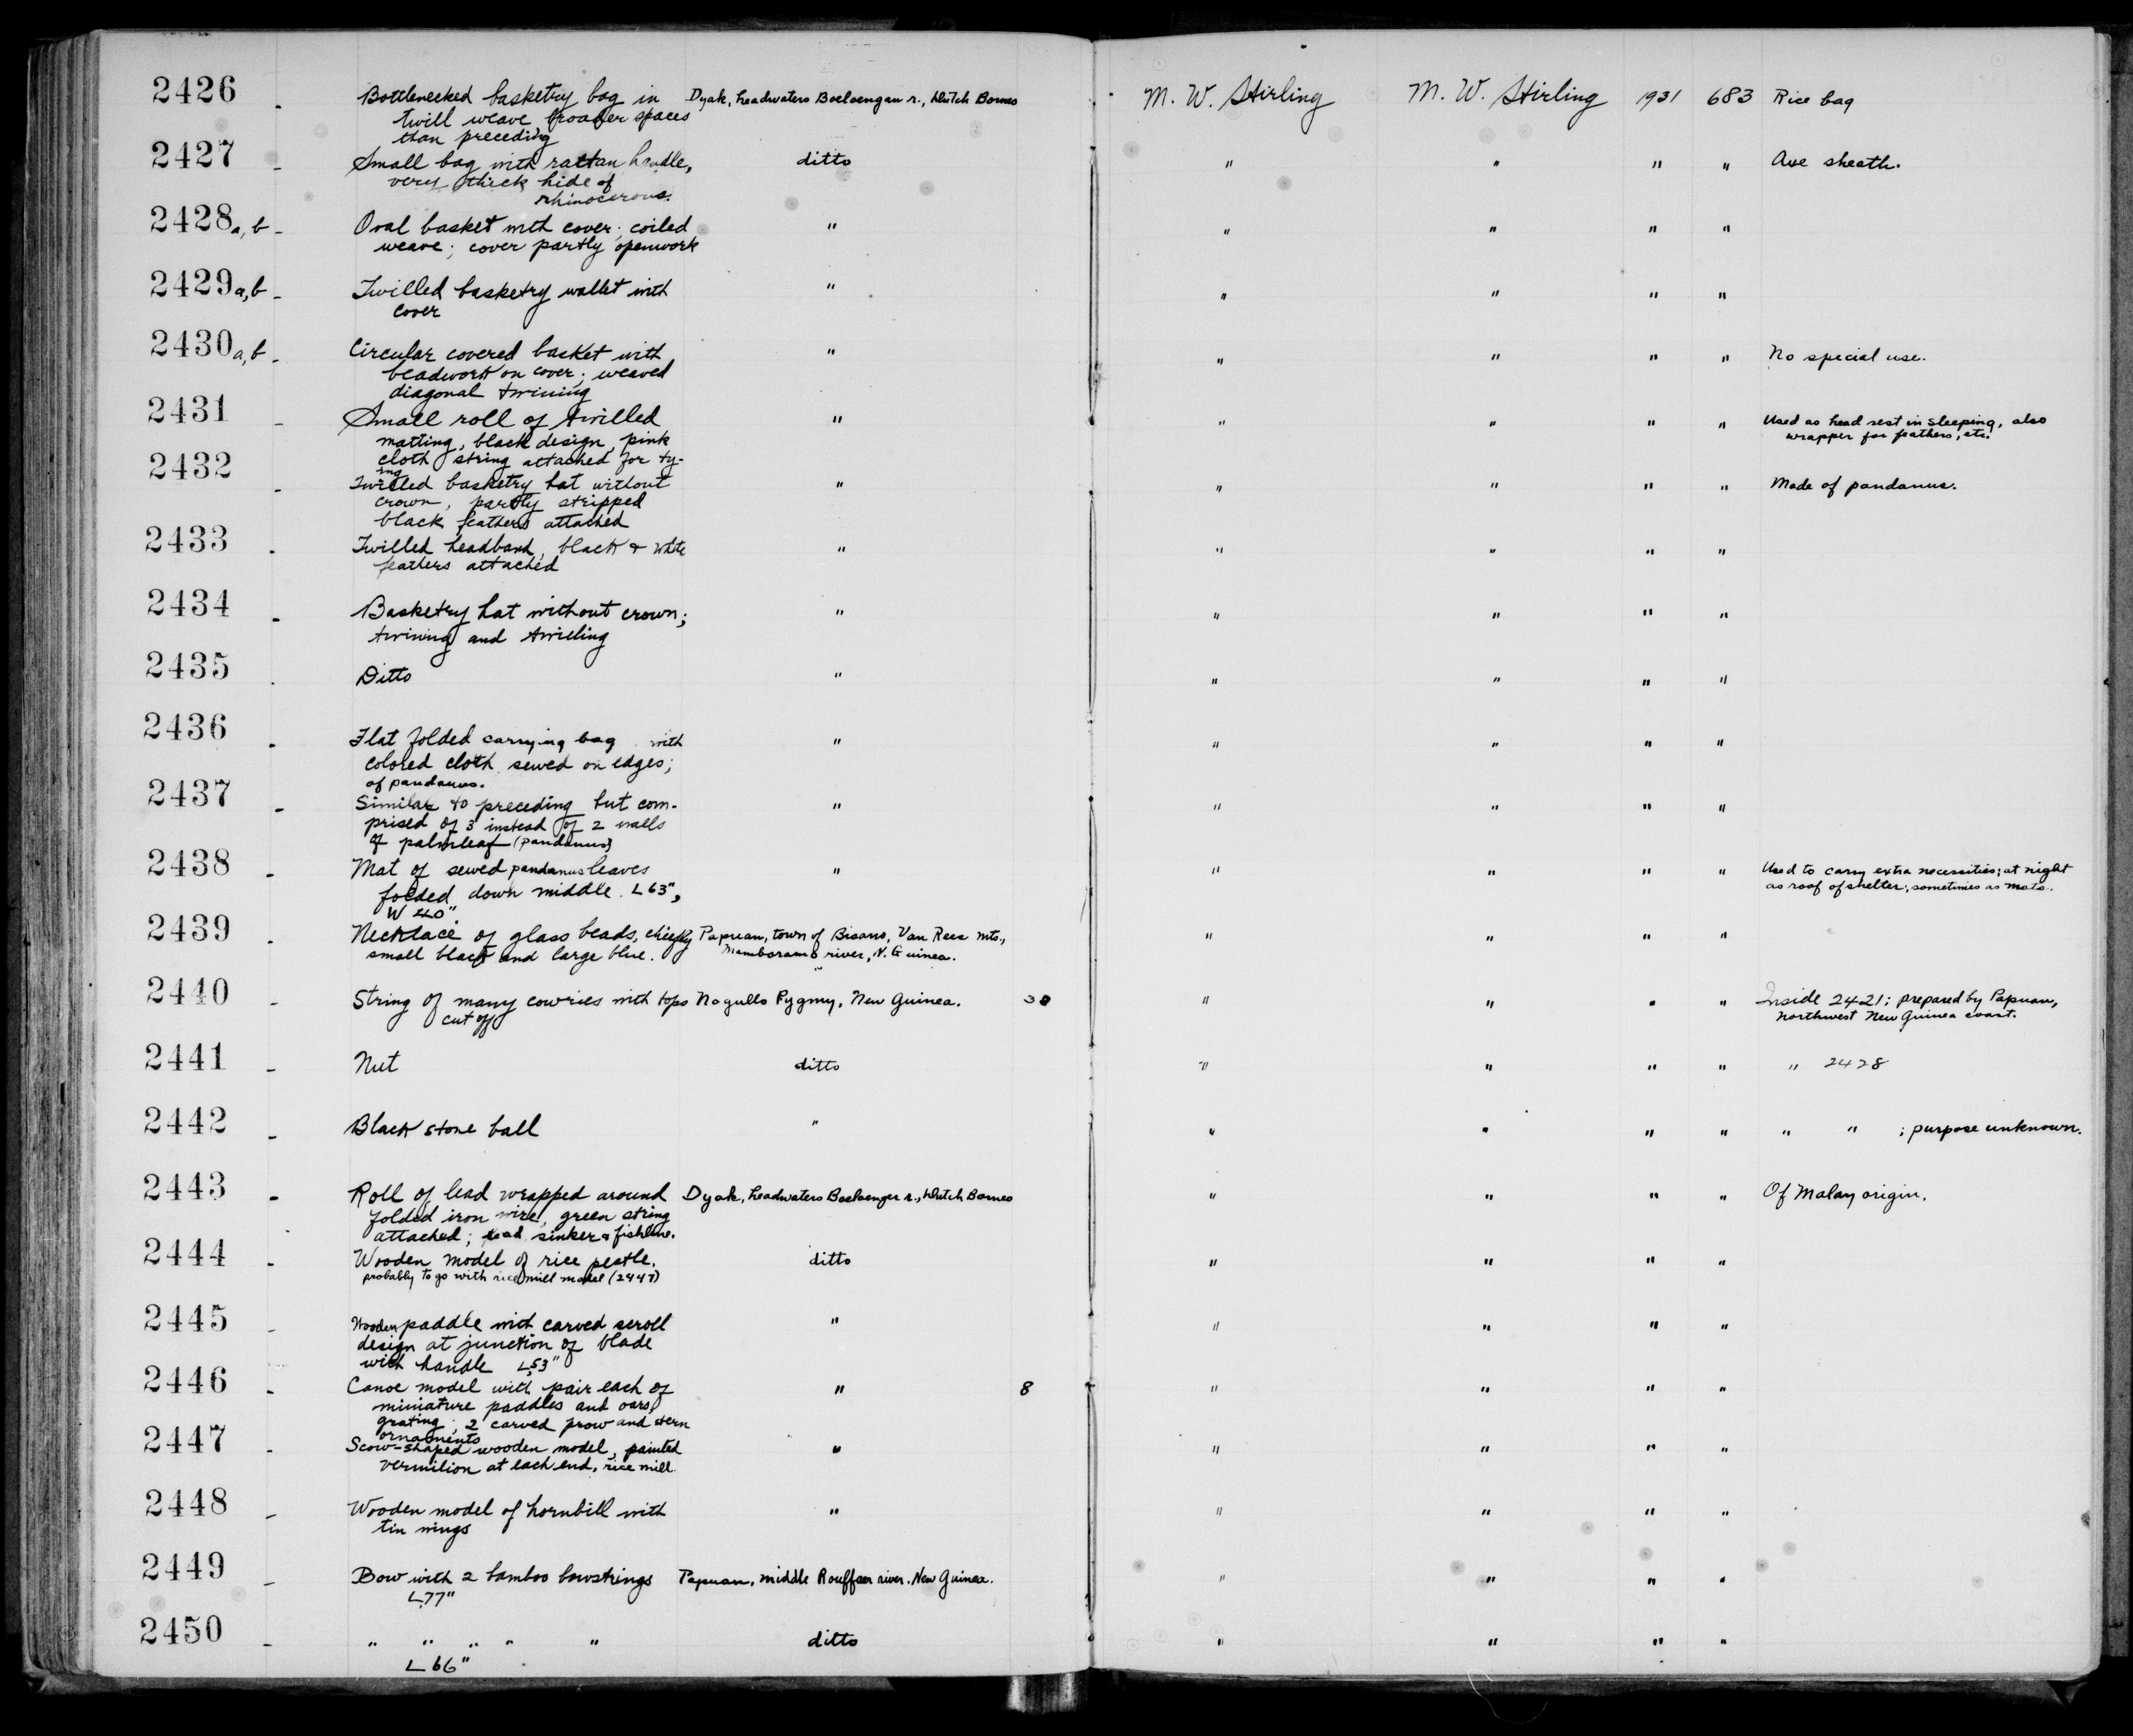 2426 - Bottlenecked basketry bag in Dyak, headwaters Boeloengan r., Dutch Borneo M. W. Stirling M. W. Stirling 1931 683 Rice bag
twill weave broader spaces
than preceding
2427 - Small bag with rattan handle, ditto " " " " Axe sheath.
very thick hide of
rhinocerous.
2428a,b - Oval basket with cover; coiled " " " " "
weave; cover partly openwork
2429a,b - Twilled basketry wallet with " " " " "
cover
2430a,b - Circular covered basket with " " " " " No special use.
beadwork on cover; weaved
diagonal twining
2431 - Small roll of twilled " " " " " Used as head rest in sleeping, also
matting, black design, pink wrapper for feathers, etc.
cloth string attached for ty-
ing
2432 - Twilled basketry hat without " " " " " Made of pandanus.
crown, partly stripped
black feathers attached
2433 - Twilled headband, black & white " " " " "
feathers attached
2434 - Basketry hat without crown; " " " " "
twining and twilling
2435 - Ditto " " " " "
2436 - Flat folded carrying bag with " " " " "
colored cloth sewed on edges;
of pandanus.
2437 - Similar to preceding but com- " " " " "
prised of 3 instead of 2 walls
of palmleaf (pandanus)
2438 - Mat of sewed pandanus leaves " " " " " Used to carry extra necessities; at night
folded down middle. L 63", as roof of shelter; sometimes as mats.
W 40"
2439 - Necklace of glass beads, chiefly Papuan, town of Bisano, Van Rees mts., " " " "
small black and large blue. Mamboramo river, N. Guinea.
2440 - String of many cowries with tops Nogullo Pygmy, New Guinea. 30 " " " " Inside 2421; prepared by Papuan,
cut off northwest New Guinea coast.
2441 - Nut ditto " " " " " 2428
2442 - Black stone ball " " " " " " " ; purpose unknown.
2443 - Roll of lead wrapped around Dyak, headwaters Boeloenger r., Dutch Borneo " " " " Of Malay origin.
folded iron wire, green string
attached; lead sinker & fishline.
2444 - Wooden model of rice pestle, ditto " " " "
probably to go with rice mill model (2447)
2445 - Wooden paddle with carved scroll " " " " "
design at junction of blade
with handle L 53"
2446 - Canoe model with pair each of " 8 " " " "
miniature paddles and oars,
grating; 2 carved prow and stern
ornaments
2447 - Scow-shaped wooden model, painted " " " " "
vermilion at each end, rice mill
2448 - Wooden model of hornbill with " " " " "
tin wings
2449 - Bow with 2 bamboo bowstrings Papuan, middle Rouffaer river. New Guinea. " " " "
L 77"
2450 - " " " " " ditto " " " "
L 66"